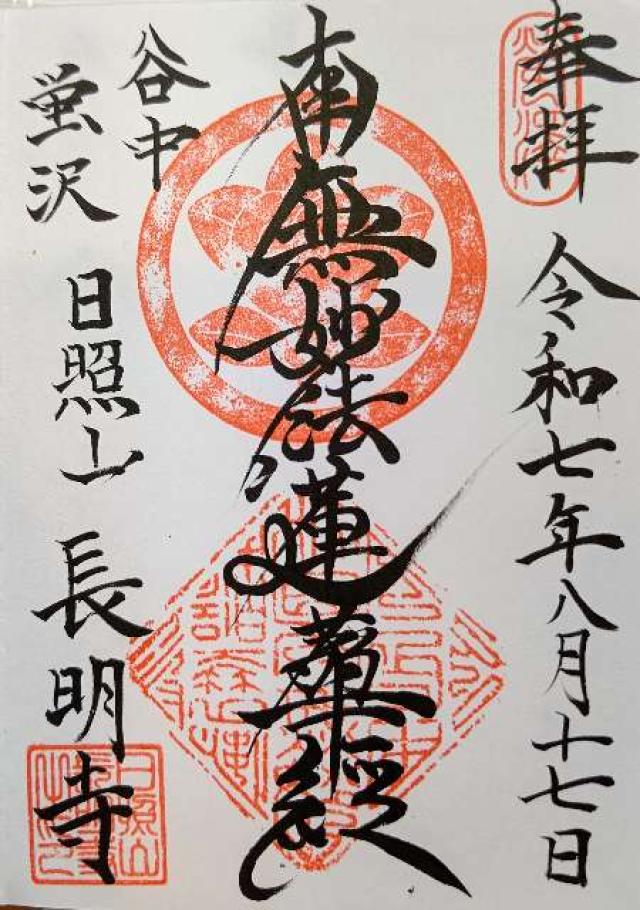 奉拝
令和七年八月十七日
南無妙法蓮華経
谷中
蛍沢
日照山 長明寺